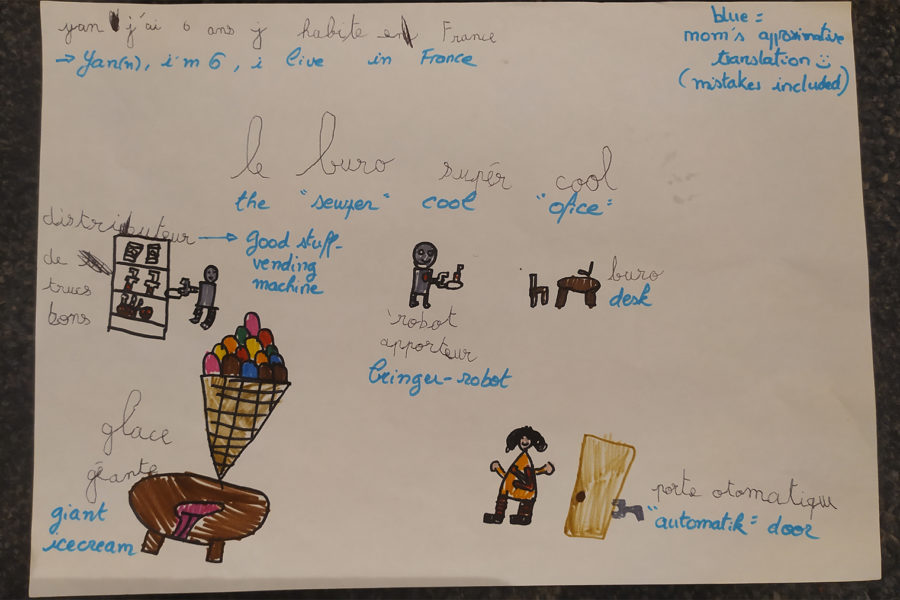 yan j'ai 6 ans j habite en France
→ Yan(n), i'm 6, i live in France
blue =
mom's approximative
translation :)
(mistakes included)
le buro supér cool
the "seuper" cool "ofice"
distributeur
de
trucs
bons
→ good stuff-
vending
machine
robot
apporteur
bringer-robot
buro
desk
glace
géante
giant
icecream
porte otomatique
"automatik" door